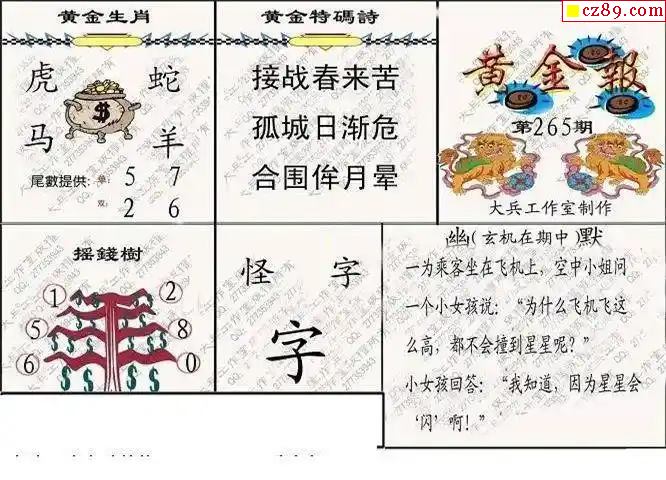 黄金生肖
虎 蛇
马 羊
$
尾數提供: 单: 5 7
双: 2 6
黄金特碼詩
接战春来苦
孤城日渐危
合围侔月晕
cz89.com
黄金報
第265期
大兵工作室制作
摇錢樹
1 2
5 8
6 0
怪 字
字
幽(玄机在期中)默
一为乘客坐在飞机上，空中小姐问
一个小女孩说：“为什么飞机飞这
么高，都不会撞到星星呢？”
小女孩回答：“我知道，因为星星会
‘闪’啊！”